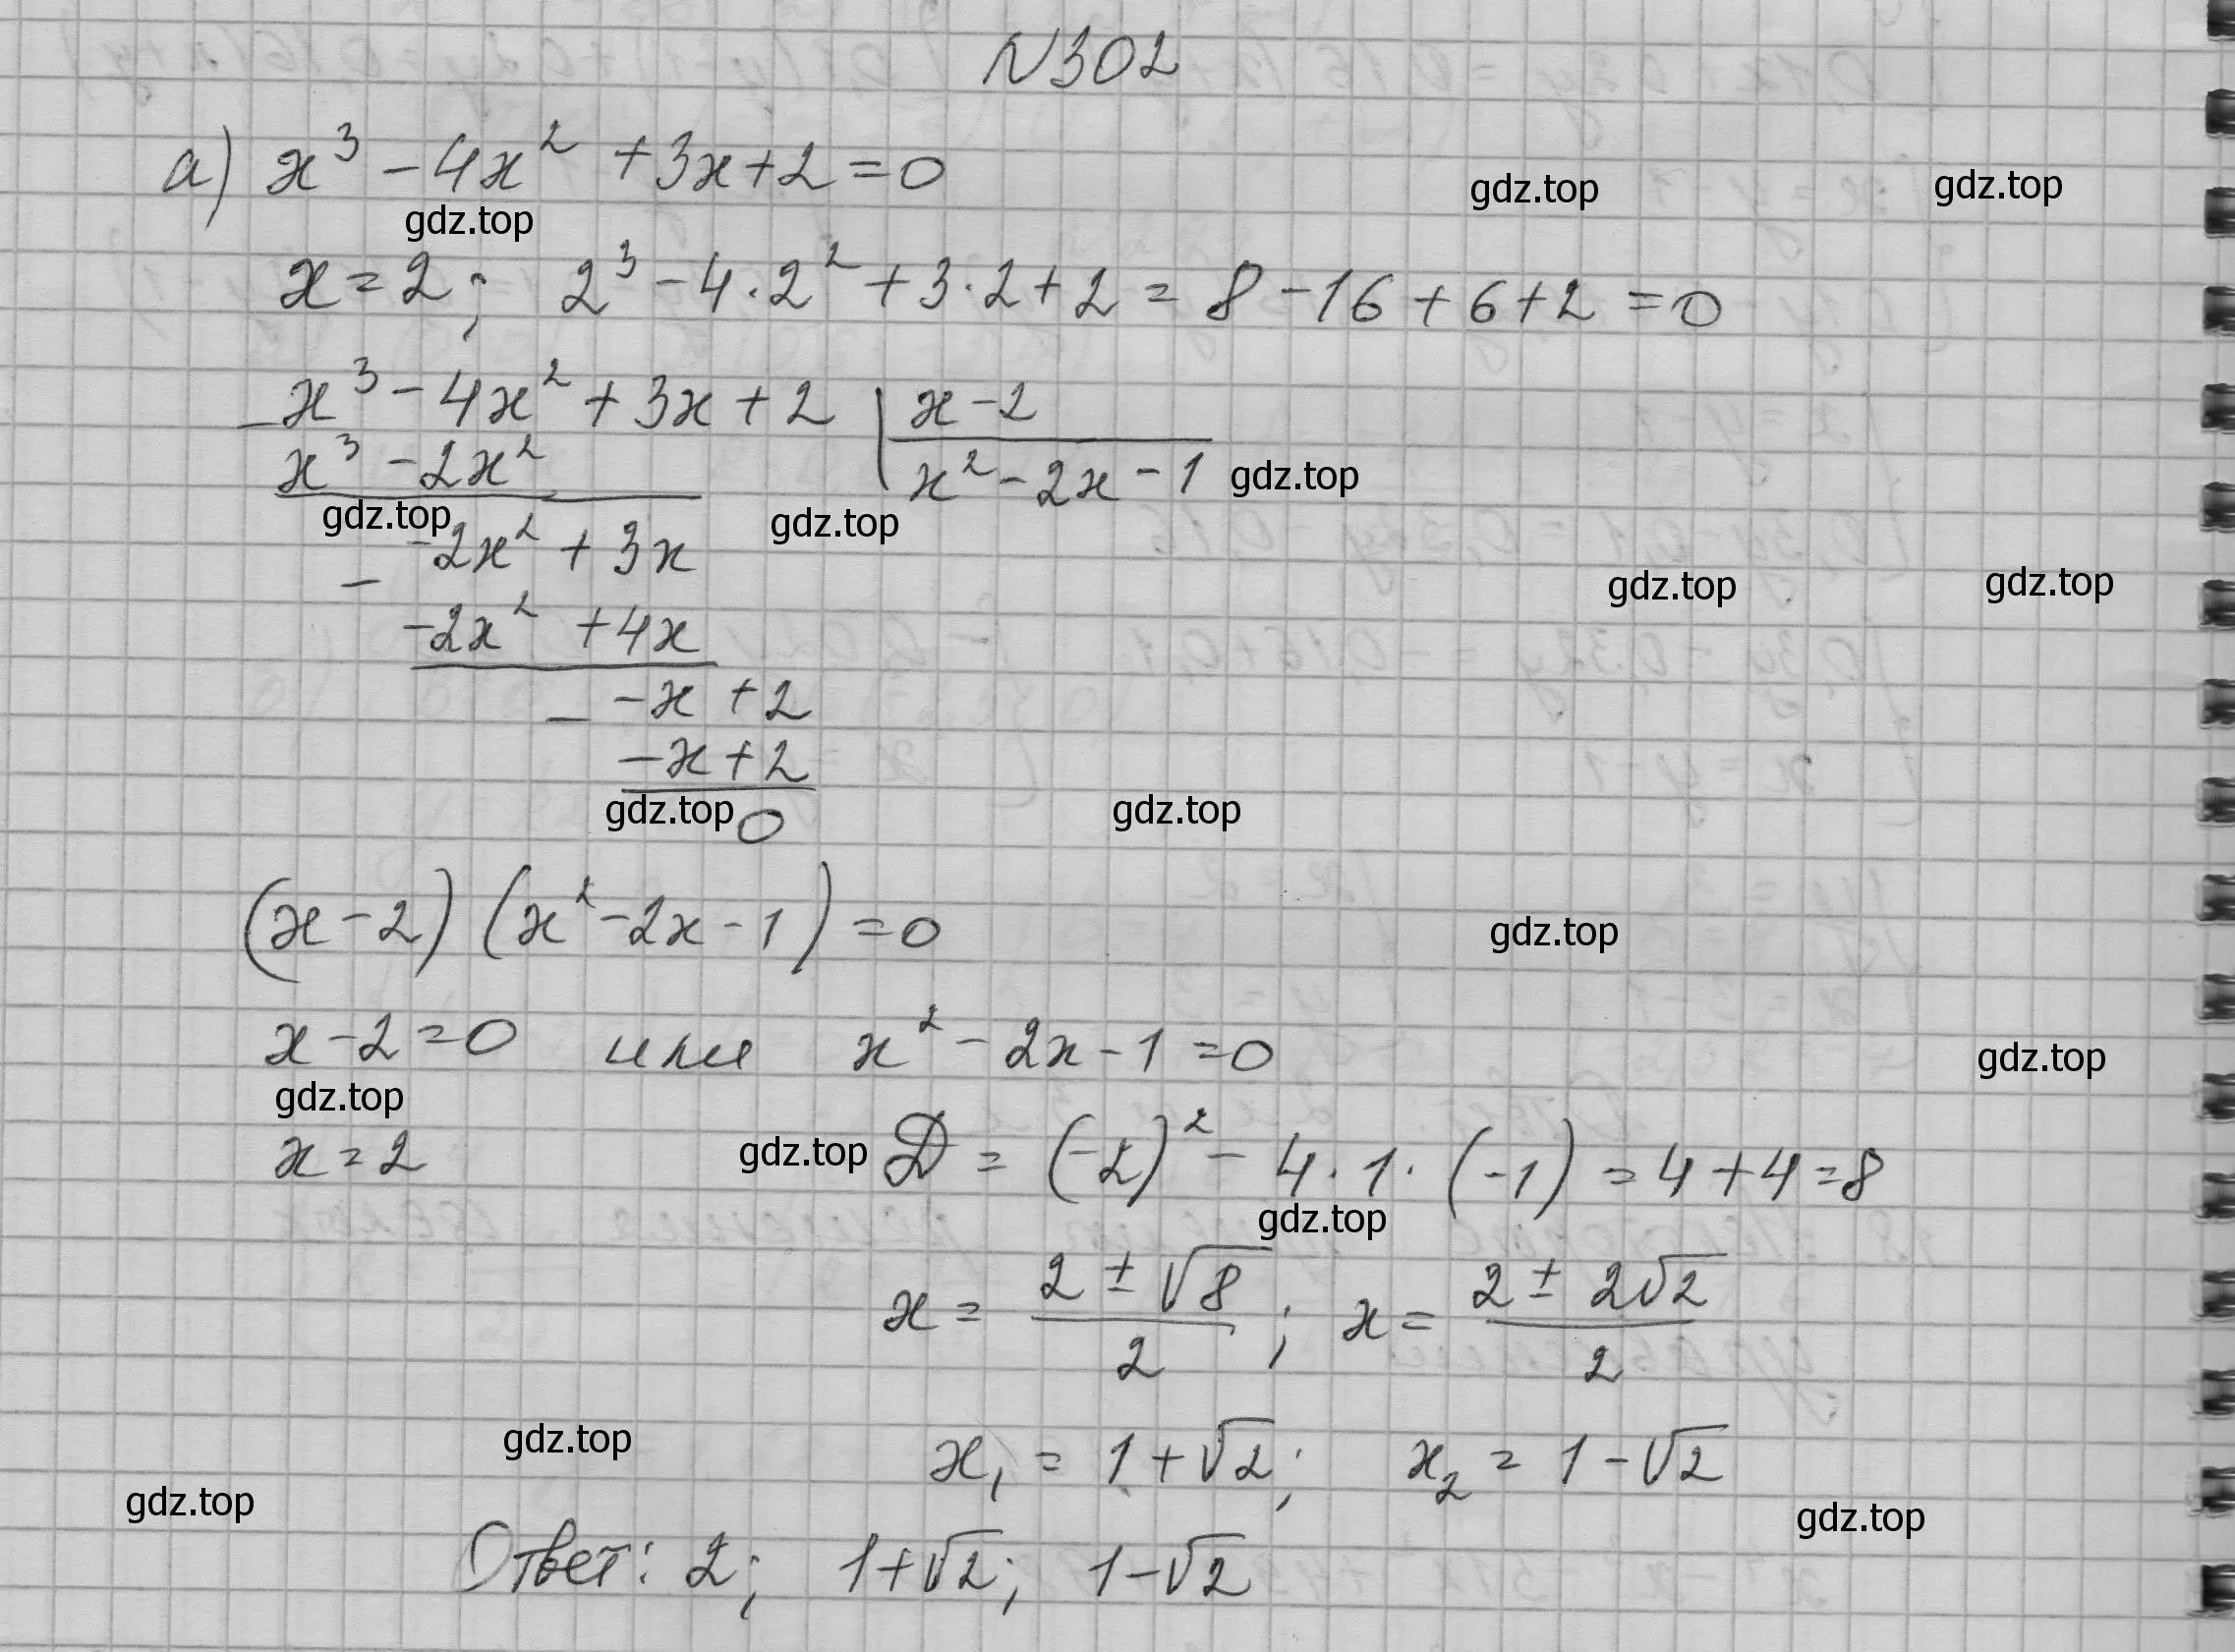 N302
а) x³ - 4x² + 3x + 2 = 0
gdz.top gdz.top gdz.top
x = 2; 2³ - 4·2² + 3·2 + 2 = 8 - 16 + 6 + 2 = 0
- x³ - 4x² + 3x + 2 | x - 2
x³ - 2x² x² - 2x - 1 gdz.top
gdz.top gdz.top
- -2x² + 3x
gdz.top gdz.top
-2x² + 4x
- -x + 2
-x + 2
gdz.top 0 gdz.top
(x - 2) (x² - 2x - 1) = 0 gdz.top
x - 2 = 0 или x² - 2x - 1 = 0
gdz.top gdz.top
x = 2 gdz.top D = (-2)² - 4·1·(-1) = 4 + 4 = 8
gdz.top
x = (2 ± √8)/2; x = (2 ± 2√2)/2
gdz.top
x₁ = 1 + √2; x₂ = 1 - √2
gdz.top gdz.top
Ответ: 2; 1+√2; 1-√2